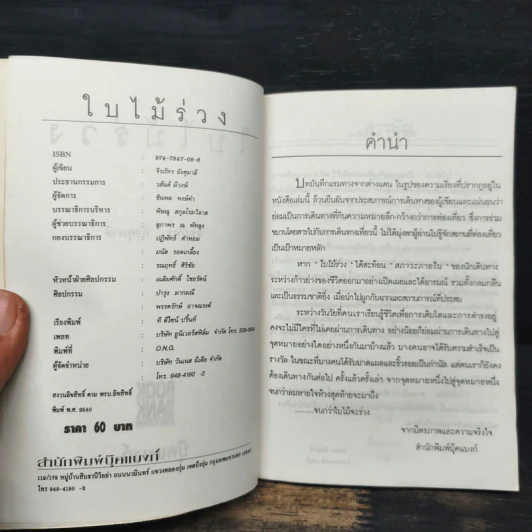 ใบไม้ร่วง
ISBN : 974-7847-08-6
ผู้เขียน : จิรภัทร อังศุมาลี
ประธานกรรมการ : วสันต์ มีวงษ์
ผู้จัดการ : ชินพล พงษ์ดำ
บรรณาธิการบริหาร : พิษณุ สกุลโรมวิลาส
ผู้ช่วยบรรณาธิการ : สุภาพร ณ พัทลุง
กองบรรณาธิการ : ปฏิพัทธ์ คำหอม
: มนัส รอดเกลี้ยง
: รณฤทธิ์ ศิริชัย
หัวหน้าฝ่ายศิลปกรรม : เฉลิมศักดิ์ ไชยรัตน์
ศิลปกรรม : บำรุง มากมณี
: พรรครักษ์ อาจณรงค์
เรียงพิมพ์ : ที ดีไซน์ ปริ้นท์
เพลท : บริษัท ยูนิเวอร์สฟิล์ม จำกัด โทร.
พิมพ์ที่ : O.N.G.
ผู้จัดจำหน่าย : บริษัท วันเนส มีเดีย จำกัด
: โทร. 948-4190 -2
สงวนลิขสิทธิ์ ตาม พรบ.ลิขสิทธิ์
พิมพ์ พ.ศ. 2540
ราคา 60 บาท
สำนักพิมพ์บุ๊คแบงก์
หมู่บ้านสินธานีวิลล่า ถนนนวมินทร์ แขวงคลองกุ่ม เขตบึงกุ่ม กรุงเทพมหานคร
โทร 948-4190 -2
คำนำ
บทบันทึกแรมทางจากต่างแดน ในรูปของความเรียงที่ปรากฏอยู่ใน
หนังสือเล่มนี้ ล้วนยืนยันจากประสบการณ์การเดินทางของผู้เขียนและแน่นอนว่า
ย่อมเป็นการเดินทางที่กินความหมายลึก-กว้างกว่าการท่องเที่ยว ซึ่งการร่วม
ขบวนโดยสารไปกับการเดินทางเที่ยวนี้ ไม่ได้มุ่งพาผู้อ่านไปรู้จักสถานที่ท่องเที่ยว
เป็นเป้าหมายหลัก
หาก "ใบไม้ร่วง" ได้สะท้อน "สภาวะภายใน" ของนักเดินทาง
ระหว่างก้าวย่างของชีวิตออกมาอย่างเปิดเผยและได้อารมณ์ รวมทั้งกลมกลืน
และเป็นธรรมชาติยิ่ง เมื่อนำไปผูกกับฉากและสถานการณ์ที่ประสบ
ระหว่างวันวัยที่คนเราเรียนรู้ชีวิตเพื่อการเติบโตและการดำรงอยู่
คงจะไม่มีใครที่ไม่เคยผ่านการเดินทาง อย่างน้อยก็ย่อมผ่านการเดินทางไปสู่
จุดหมายอย่างใดอย่างหนึ่งกันมาบ้างแล้ว บางคนอาจได้รับความสำเร็จเป็น
รางวัล ในขณะที่บางคนได้รับบาดแผลและริ้วรอยเป็นกำนัล แต่คนเราก็ยังคง
ต้องเดินทางกันต่อไป ครั้งแล้วครั้งเล่า จากจุดหมายหนึ่งไปสู่จุดหมายหนึ่ง
จนกว่าลมหายใจห้วงสุดท้ายจะมาถึง
......จนกว่าใบไม้จะร่วง
จากมิตรภาพและความจริงใจ
สำนักพิมพ์บุ๊คแบงก์